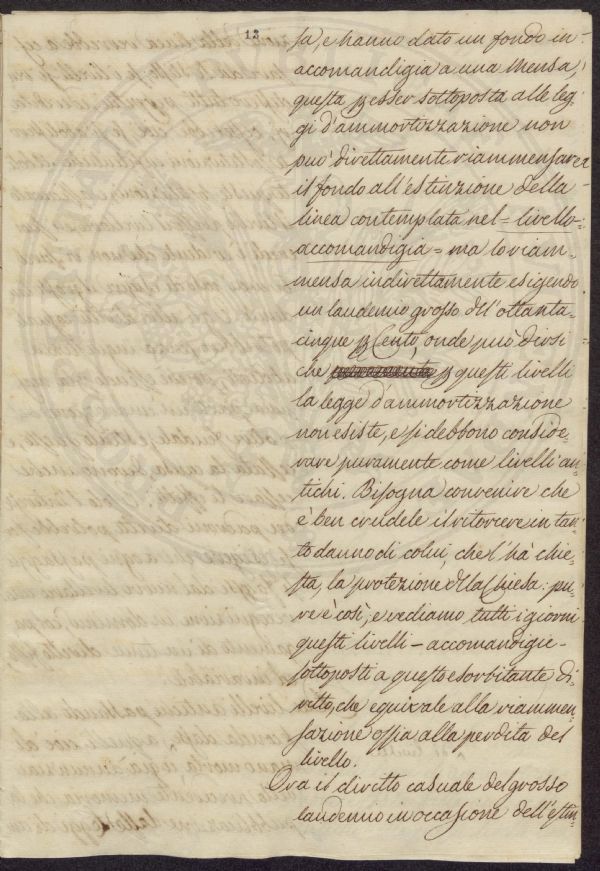 13
sa, e hanno dato un fondo in-
accomandigia a una Mensa,
questa p esser sottoposta alle leg-
gi d'ammortizzazione non
può direttamente riammensare
il fondo all'estinzione della
linea contemplata nel = livello-
accomandigia = ma lo riam-
mensa indirettamente esigendo
un laudemio grosso dell'ottanta-
cinque p Cento, onde può dirsi
che p questi livelli
la legge d'ammortizzazione
non esiste, e si debbono conside-
rare puramente come livelli an-
tichi. Bisogna convenire che
è ben crudele il ritorcere in tan-
to danno di colui, che l'hà chie-
sta, la protezione della Chiesa: pu-
re è così, e vediamo tutti i giorni
questi livelli - accomandigie -
sottoposti a questo esorbitante di-
ritto, che equivale alla riammen-
sazione ossia alla perdita del
livello.
Ora il diritto casuale del grosso
laudemio in occasione dell'estin-